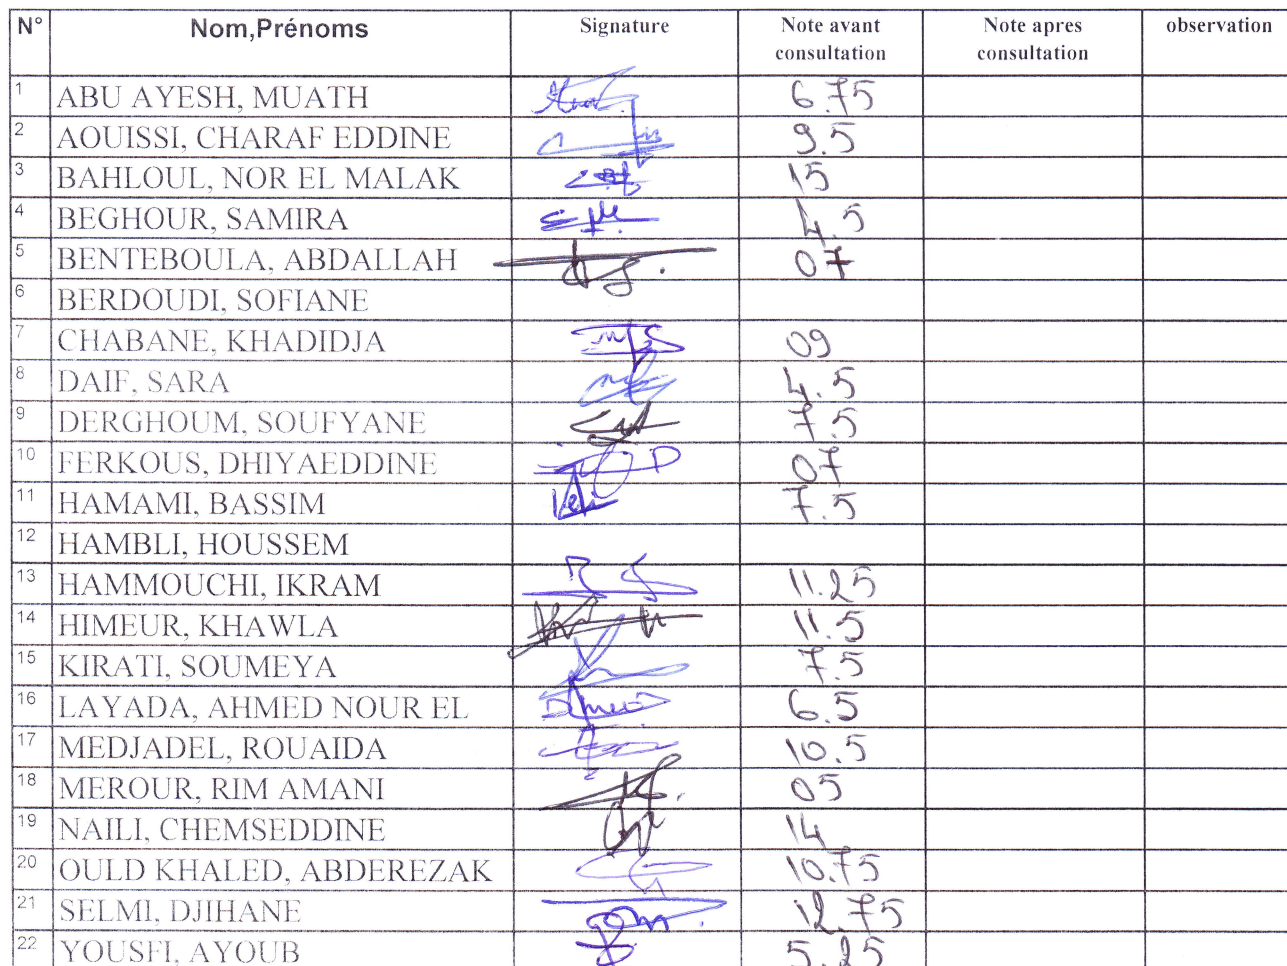 N° Nom,Prénoms Signature Note avant consultation Note apres consultation observation
1 ABU AYESH, MUATH 6.75
2 AOUISSI, CHARAF EDDINE 9.5
3 BAHLOUL, NOR EL MALAK 15
4 BEGHOUR, SAMIRA 4.5
5 BENTEBOULA, ABDALLAH 07
6 BERDOUDI, SOFIANE
7 CHABANE, KHADIDJA 09
8 DAIF, SARA 4.5
9 DERGHOUM, SOUFYANE 7.5
10 FERKOUS, DHIYAEDDINE 07
11 HAMAMI, BASSIM 7.5
12 HAMBLI, HOUSSEM
13 HAMMOUCHI, IKRAM 11.25
14 HIMEUR, KHAWLA 11.5
15 KIRATI, SOUMEYA 7.5
16 LAYADA, AHMED NOUR EL 6.5
17 MEDJADEL, ROUAIDA 10.5
18 MEROUR, RIM AMANI 05
19 NAILI, CHEMSEDDINE 14
20 OULD KHALED, ABDEREZAK 10.75
21 SELMI, DJIHANE 12.75
22 YOUSFI, AYOUB 5.25